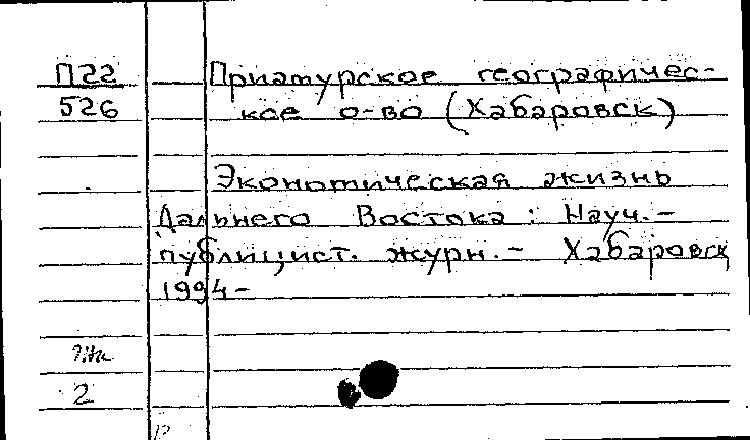 П22 Приамурское географичес-
526 кое о-во (Хабаровск)
Экономическая жизнь
Дальнего Востока: Науч.-
публицист. журн. - Хабаровск
1994-
2